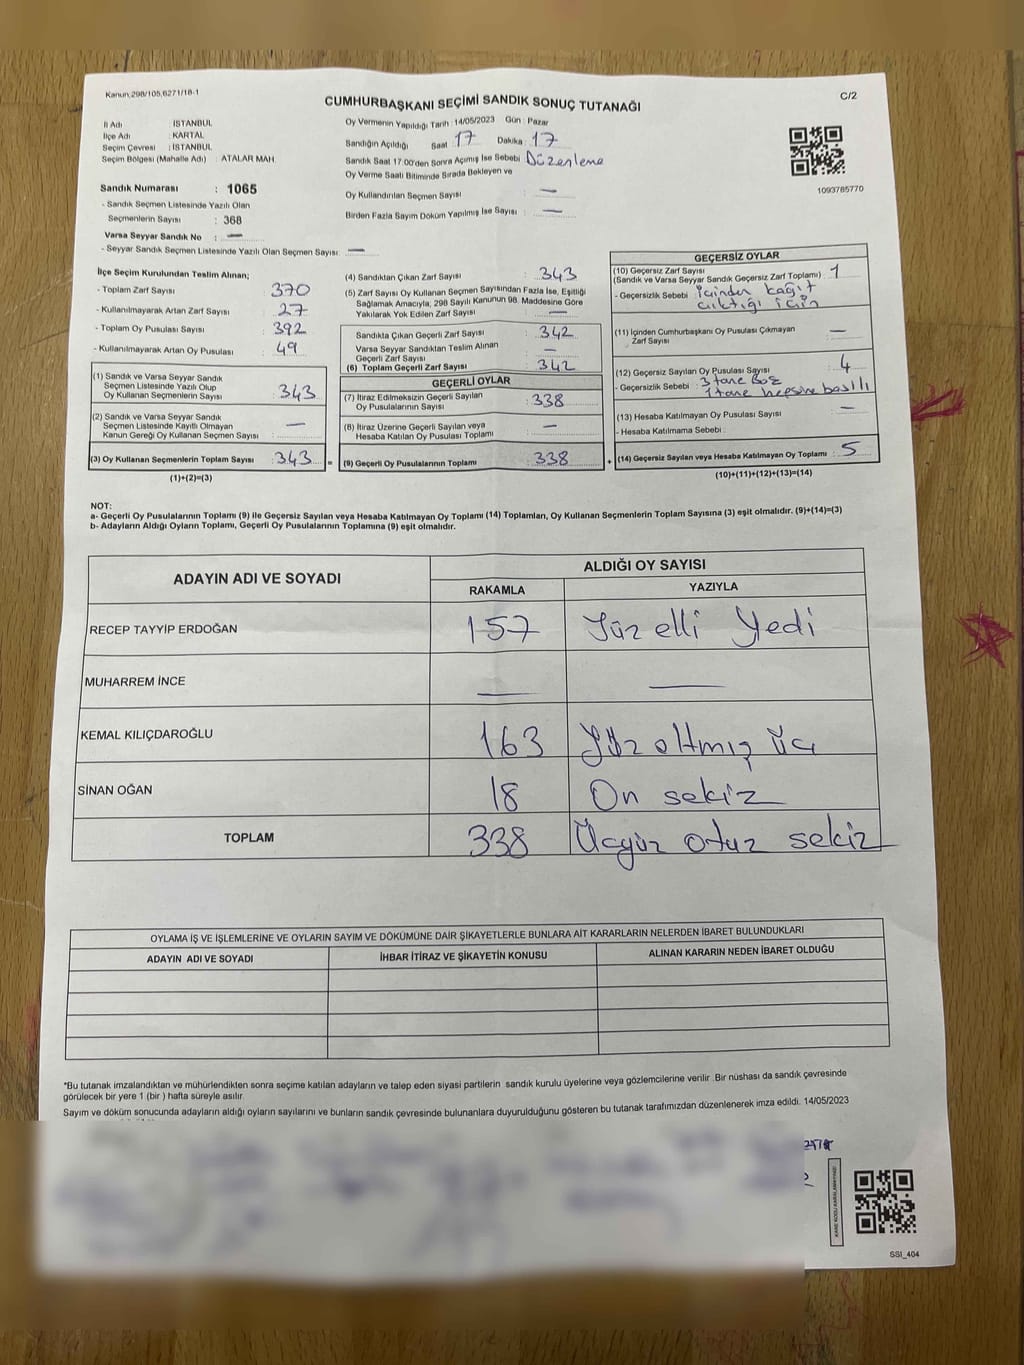 Kanun;298/105,6271/18-1
CUMHURBAŞKANI SEÇİMİ SANDIK SONUÇ TUTANAĞI
C/2
İl Adı : İSTANBUL
İlçe Adı : KARTAL
Seçim Çevresi : İSTANBUL
Seçim Bölgesi (Mahalle Adı) : ATALAR MAH.
Sandık Numarası : 1065
- Sandık Seçmen Listesinde Yazılı Olan
Seçmenlerin Sayısı : 368
Varsa Seyyar Sandık No : —
- Seyyar Sandık Seçmen Listesinde Yazılı Olan Seçmen Sayısı: —
Oy Vermenin Yapıldığı Tarih :14/05/2023 Gün : Pazar
Sandığın Açıldığı Saat : 17 Dakika : 17
Sandık Saat 17:00'den Sonra Açımış İse Sebebi : Düzenleme
Oy Verme Saati Bitiminde Sırada Bekleyen ve
Oy Kullandırılan Seçmen Sayısı : —
Birden Fazla Sayım Döküm Yapılmış İse Sayısı : —
1093785770
İlçe Seçim Kurulundan Teslim Alınan;
- Toplam Zarf Sayısı : 370
- Kullanılmayarak Artan Zarf Sayısı : 27
- Toplam Oy Pusulası Sayısı : 392
- Kullanılmayarak Artan Oy Pusulası : 49
(1) Sandık ve Varsa Seyyar Sandık
Seçmen Listesinde Yazılı Olup
Oy Kullanan Seçmenlerin Sayısı : 343
(2) Sandık ve Varsa Seyyar Sandık
Seçmen Listesinde Kayıtlı Olmayan
Kanun Gereği Oy Kullanan Seçmen Sayısı : —
(3) Oy Kullanan Seçmenlerin Toplam Sayısı : 343
(1)+(2)=(3)
(4) Sandıktan Çıkan Zarf Sayısı : 343
(5) Zarf Sayısı Oy Kullanan Seçmen Sayısından Fazla İse, Eşitliği
Sağlamak Amacıyla, 298 Sayılı Kanunun 98. Maddesine Göre
Yakılarak Yok Edilen Zarf Sayısı : —
Sandıkta Çıkan Geçerli Zarf Sayısı : 342
Varsa Seyyar Sandıktan Teslim Alınan
Geçerli Zarf Sayısı : —
(6) Toplam Geçerli Zarf Sayısı : 342
GEÇERLİ OYLAR
(7) İtiraz Edilmeksizin Geçerli Sayılan
Oy Pusulasının Sayısı : 338
(8) İtiraz Üzerine Geçerli Sayılan veya
Hesaba Katılan Oy Pusulası Toplamı : —
= (9) Geçerli Oy Pusulalarının Toplamı : 338
GEÇERSİZ OYLAR
(10) Geçersiz Zarf Sayısı
(Sandık ve Varsa Seyyar Sandık Geçersiz Zarf Toplamı) : 1
- Geçersizlik Sebebi : İçinden kağıt
çıktığı için
(11) İçinden Cumhurbaşkanı Oy Pusulası Çıkmayan
Zarf Sayısı : —
(12) Geçersiz Sayılan Oy Pusulası Sayısı : 4
- Geçersizlik Sebebi : 3 tane Boş
1 tane hepsine basılı
(13) Hesaba Katılmayan Oy Pusulası Sayısı : —
- Hesaba Katılmama Sebebi :
+ (14) Geçersiz Sayılan veya Hesaba Katılmayan Oy Toplamı : 5
(10)+(11)+(12)+(13)=(14)
NOT:
a- Geçerli Oy Pusulalarının Toplamı (9) ile Geçersiz Sayılan veya Hesaba Katılmayan Oy Toplamı (14) Toplamları, Oy Kullanan Seçmenlerin Toplam Sayısına (3) eşit olmalıdır. (9)+(14)=(3)
b- Adayların Aldığı Oyların Toplamı, Geçerli Oy Pusulalarının Toplamına (9) eşit olmalıdır.
ADAYIN ADI VE SOYADI
ALDIĞI OY SAYISI
RAKAMLA YAZIYLA
RECEP TAYYİP ERDOĞAN 157 Yüz elli Yedi
MUHARREM İNCE — —
KEMAL KILIÇDAROĞLU 163 Yüz altmış üç
SİNAN OĞAN 18 On sekiz
TOPLAM 338 Üçyüz otuz sekiz
OYLAMA İŞ VE İŞLEMLERİNE VE OYLARIN SAYIM VE DÖKÜMÜNE DAİR ŞİKAYETLERLE BUNLARA AİT KARARLARIN NELERDEN İBARET BULUNDUKLARI
ADAYIN ADI VE SOYADI İHBAR İTİRAZ VE ŞİKAYETİN KONUSU ALINAN KARARIN NEDEN İBARET OLDUĞU
*Bu tutanak imzalandıktan ve mühürlendikten sonra seçime katılan adayların ve talep eden siyasi partilerin sandık kurulu üyelerine veya gözlemcilerine verilir .Bir nüshası da sandık çevresinde
görülecek bir yere 1 (bir ) hafta süreyle asılır.
Sayım ve döküm sonucunda adayların aldığı oyların sayılarını ve bunların sandık çevresinde bulunanlara duyurulduğunu gösteren bu tutanak tarafımızdan düzenlenerek imza edildi. 14/05/2023
SSI_404